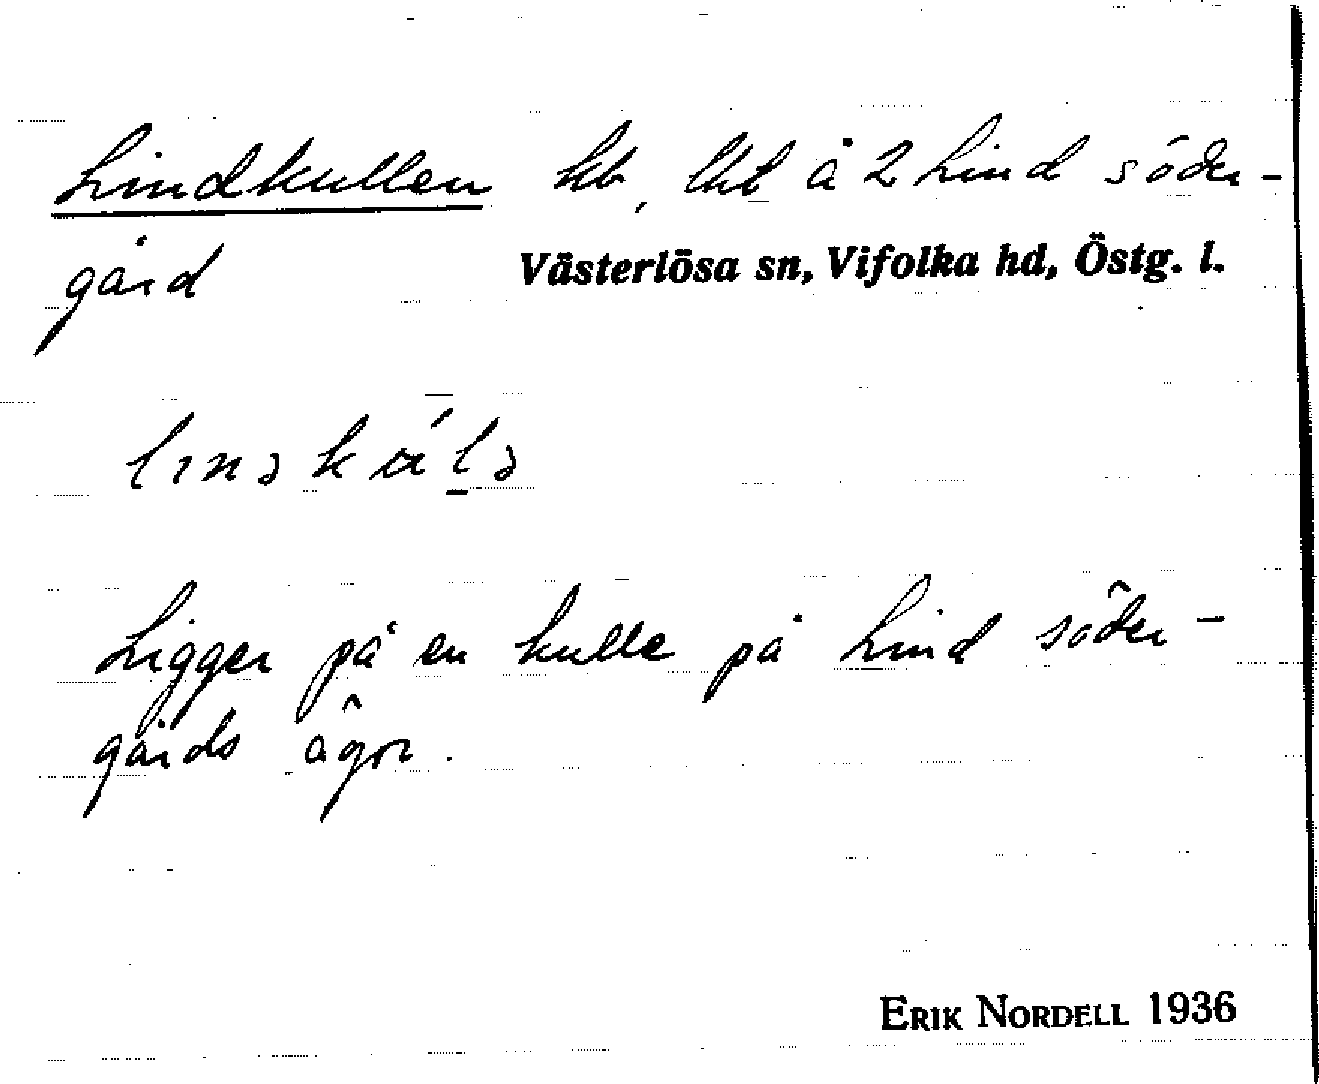 Lindkullen hb, lht å 2 Lind söder-
gård
Västerlösa sn, Vifolka hd, Östg. l.
Ligger på en kulle på Lind söder-
gårds ägor.
ERIK NORDELL 1936